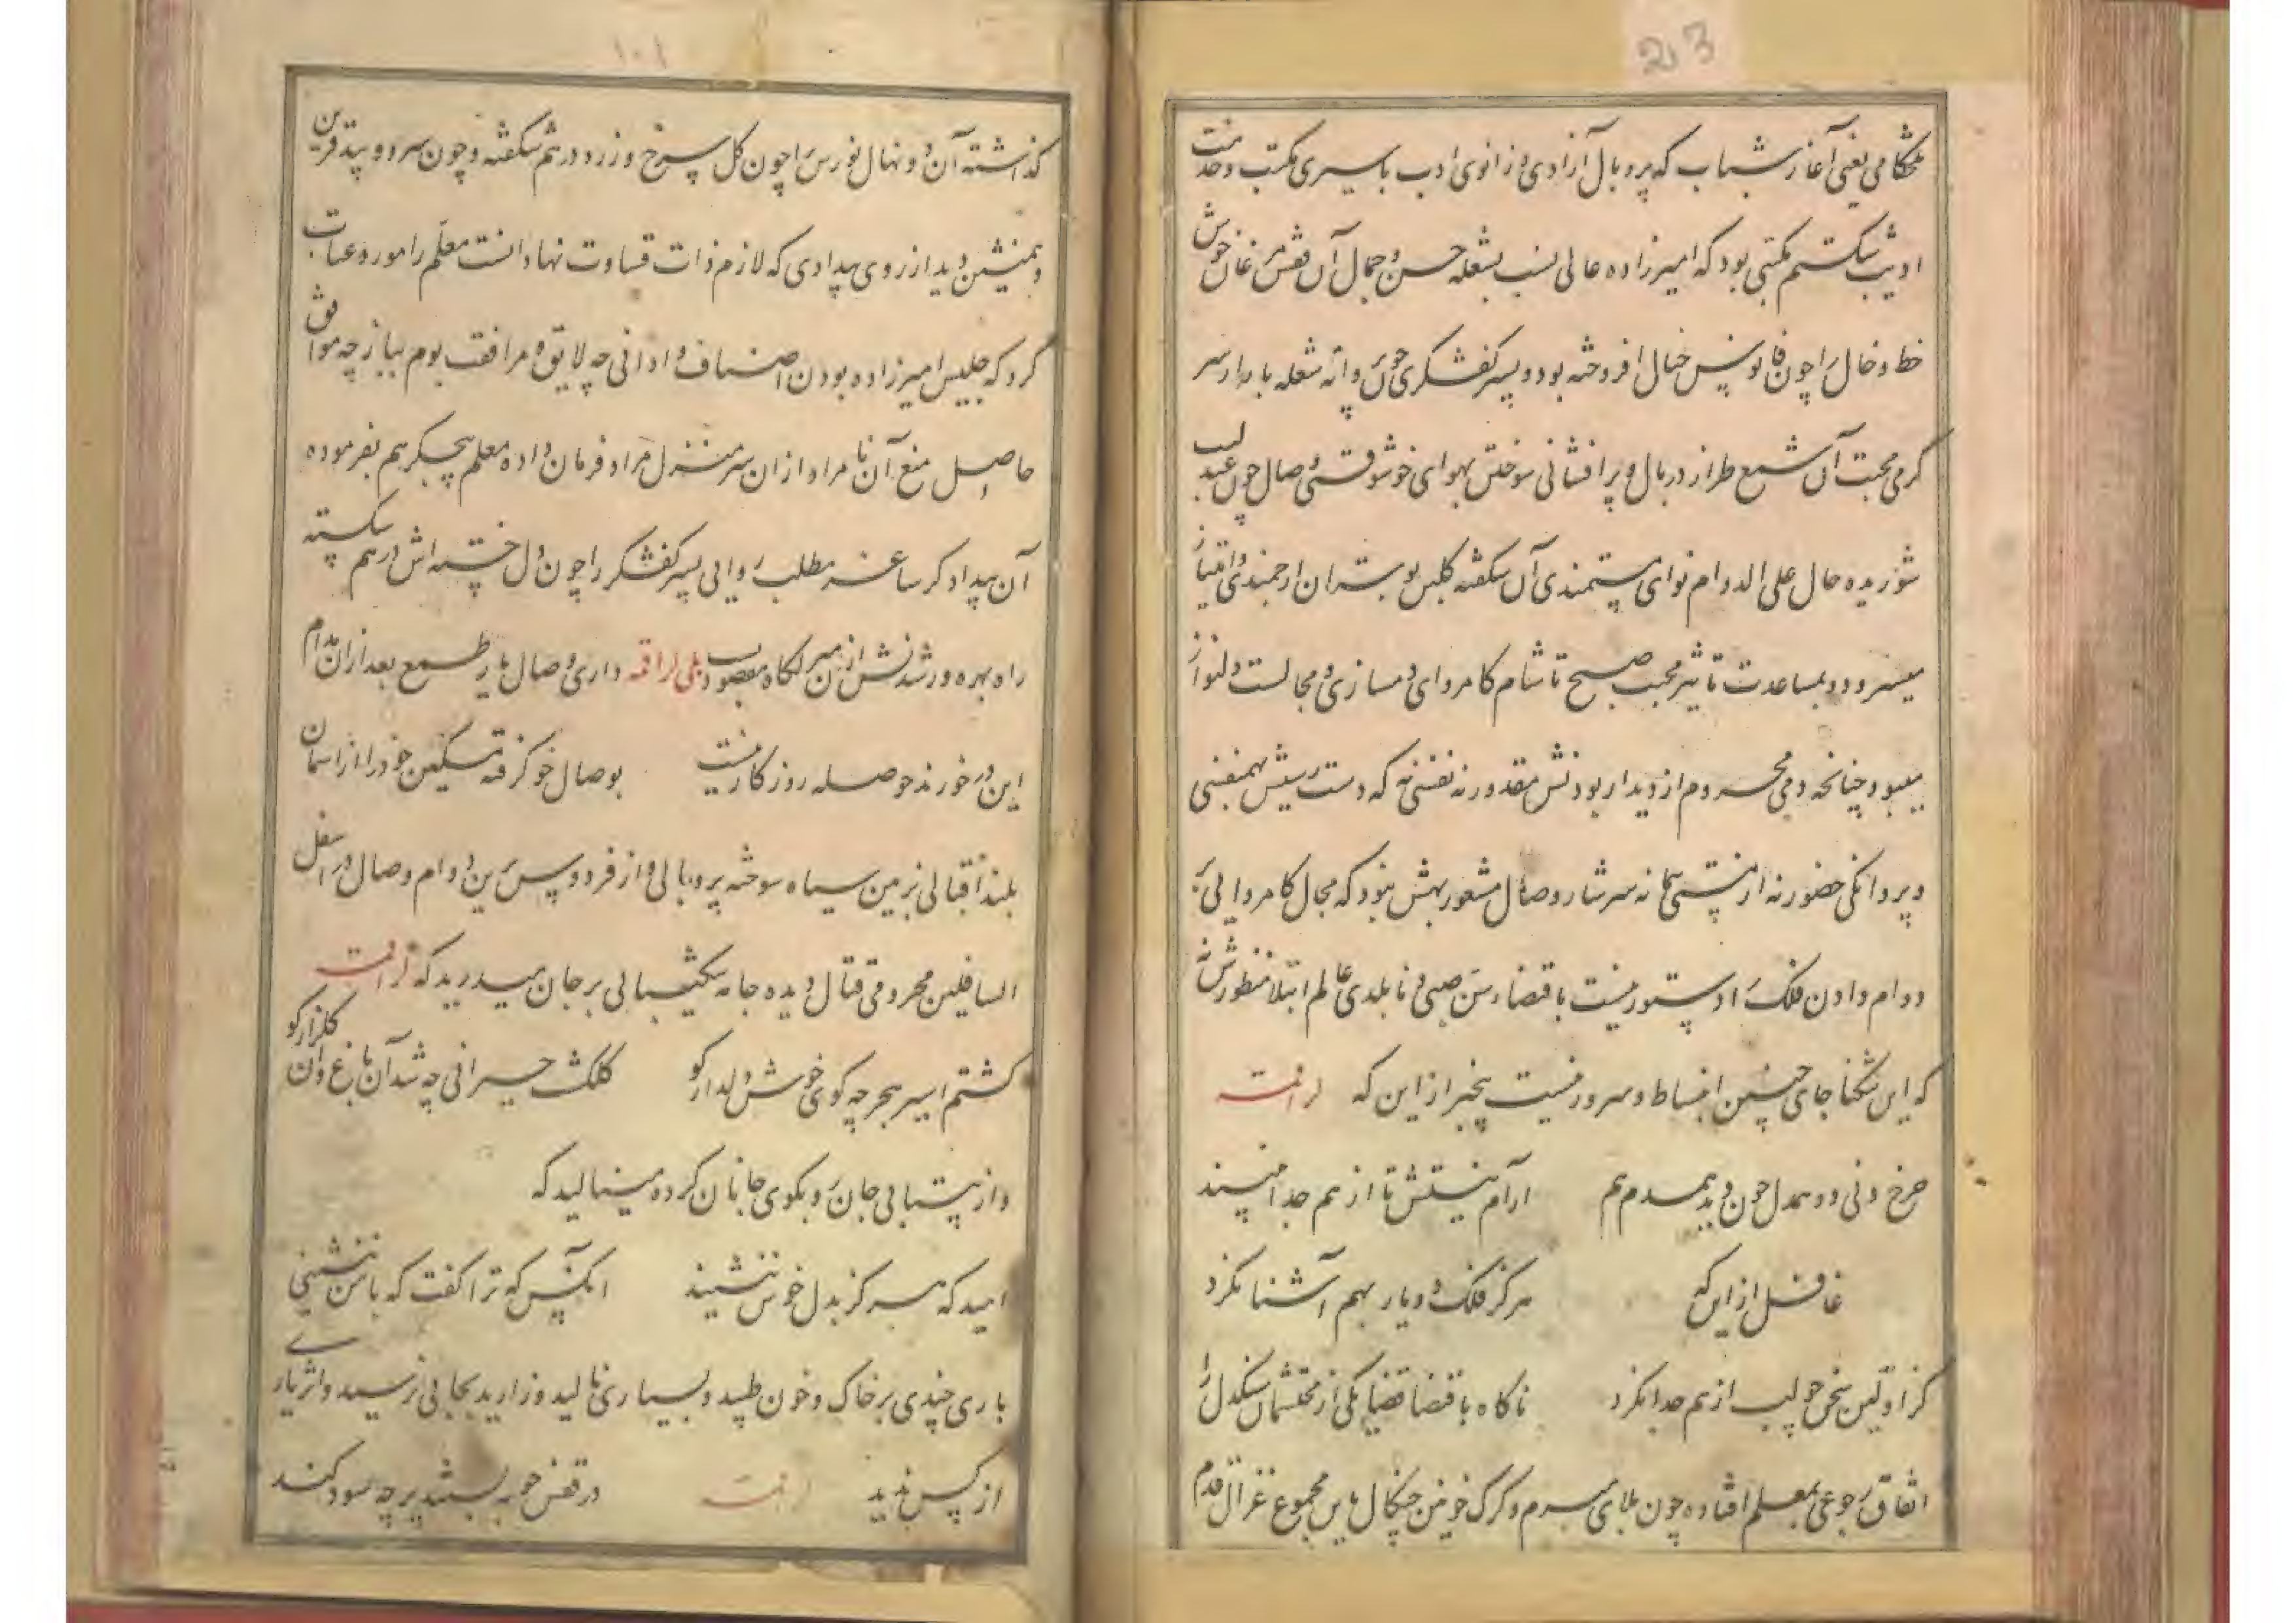 213
هنگامی یعنی آغاز شباب که پر و بال آزادی و زانوی ادب باسیری مکتب و خدمت
ادیب شکستم مکتبی بود که امیرزاده عالی نسب بشعله حسن و جمال آن قفس مرغان خوش
خط و خال را چون فانوس خیال افروخته بود و پسر کفشگری چون پروانه شعله با مدار سر
گرمی محبت آن شمع طراز در بال و پر افشانی سوختن بهوای خوشوقتی وصال چون عندلیب
شوریده حال علی الدوام نوای مستمندی آن شکفته گلبن بوستان ارجمندی و امتیاز
میسرود و بمساعدت تاثیر محبت صبح تا شام کامروای دمسازی و مجالست دلنواز
میبود چنانچه دمی محروم از دیدار بودنش مقدور نه نفسی نه که دست رسش بهمنفسی
و پروانگی حضور نه از مستی پیمانه سرشار وصال مشعور بهش نبود که مجال کامروائی
دوام دادن فلک را دستور نیست باقتضاء سن صبی و نابلدی عالم ابتلا منظورش نه
که این تنگنا جای چنین انبساط و سرور نیست بیخبر از این که لراقمه
چرخ دنی دو همدل چون دید همدم هم آرام نیستش تا از هم جدا نبیند
غافل از این که هرگز فلک دو یار بهم آشنا نکرد
کز اولین سخن چو لب از هم جدا نکرد ناگاه باقتضا قضا یکی از محتشمان سنگدل را
اتفاق رجوعی بمعلم افتاده چون بلای مبرم و گرگ خونین چنگال باین مجموع غزال قدم
۱۰۱
گذاشته آن دو نهال نورس را چون گل سرخ و زرد در هم شکفته و چون سرو و بید قرین
و همنشین دید از روی بیدادی که لازم ذات قساوت نهاد انست معلم را مورد عتاب
کرد که جلیس امیرزاده بودن اصناف و ادانی چه لایق و مرافقت بوم بباز چه موافق
حاصل منع آن نامراد از آن سرمنزل مراد فرمان داده معلم بیجگر هم بفرموده
آن بیدادگر ساغر مطلب روایی پسر کفشگر را چون دل خسته اش در هم شکسته
راه بهره ور شدنش از آن منزلگاه مقصود بلی لراقمه داری وصال یار طمع بعد از آن مدام
این در خور نه حوصله روزگار نیست بوصال خو گرفته مسکین خود را از آسمان
بلند اقبالی بزمین سیاه سوخته پر و بالی و از فردوس برین دوام وصال در اسفل
السافلین محرومی قتال دیده جامه شکیبایی بر جان میدرید که لراقمه
گشتم اسیر هجر چه گوئی خوش دلدار کو گلگشت حیرانی چه شد آن باغ و آن گلزار کو
و از بیتابی جان رو بکوی جانان کرده مینالید که
امید که هرگز بدل خوش ننشیند آنکس که ترا گفت که با من ننشینی
باری چندی بر خاک و خون طپید و بسیاری نالید و زارید بجایی نرسید و اثر یاری
از کس ندید لراقمه در قفس خوبه بستد پر چه سود کند